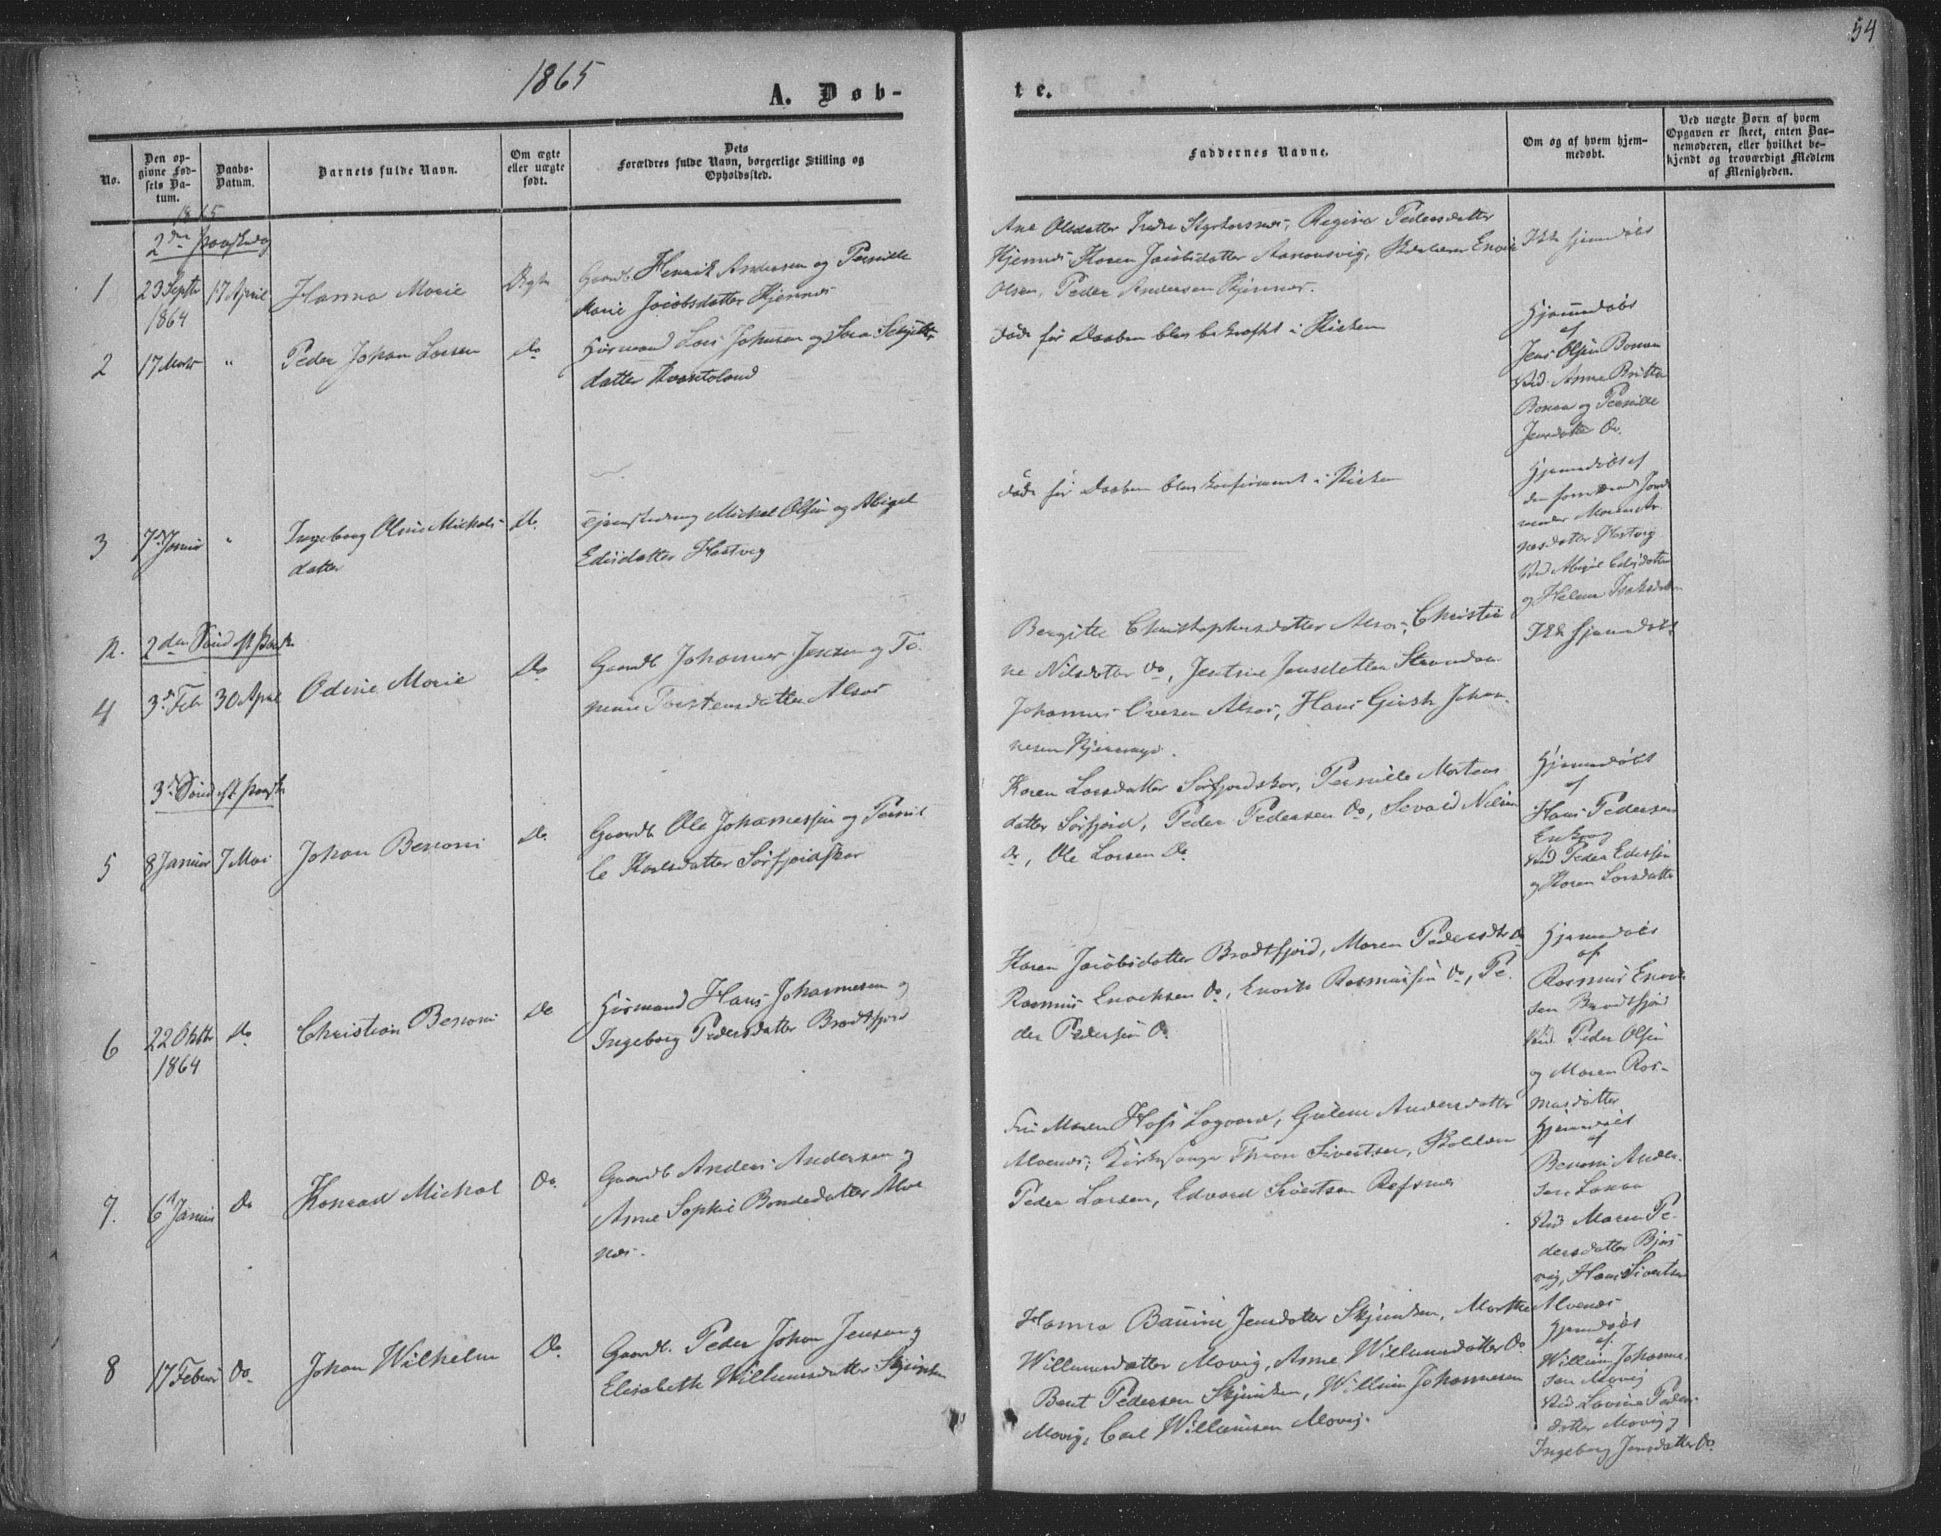 54
1865
A. Døb-
te.
No.
Den op-
givne Fød-
sels Da-
tum.
Daabs-
Datum.
Barnets fulde Navn.
Om ægte
eller uægte
født.
Dets
Forældres fulde Navn, borgerlige Stilling og
Opholdssted.
Faddernes Navne.
Om og af hvem hjem-
medøbt.
Ved uægte Børn af hvem
Opgaven er skeet, enten Bar-
nemoderen, eller hvilket be-
kjendt og troværdigt Medlem
af Menigheden.
1865
2den Paaskedag
1
23 Septbr
1864
17 April
Hanna Marie
Ægte
Gaardb. Henrik Andersen og Pernille
Marie Jacobsdatter Hjennes
Ane Olsdatter Indre Styrkersnes, Regina Pedersdatter
Hjennes, Karen Jacobsdatter Aanonsvig,
Olsen, Peder Andersen Hjennes.
Ikke hjemdøbt
2
17 Marts
"
Peder Johan Larsen
Do
Huusmand Lars Johnsen og Sara
datter
døde før Daaben blev bekræftet i Kirken
Hjemmedøbt
af
Jens Olsen Bonaa
Vid. Anne Britta
Bonaa og Pernille
Jensdatter Do.
3
7de Januar
"
Ingeborg Oline Mickels-
datter
Do.
Mickel Olsen og Abigel
Edisdatter Hestvig
døde før Daaben blev konfirmeret i Kirken
Hjemmedøbt af
Maren
datter Hestvig
Vid Abigel Edisdatter
og Helena Isaksdatter
N.
2den Sønd eft Paaske
4
3d Feb
30 April
Odine Marie
Do
Gaardb Johannes Jensen og
Torstensdatter Alsos
Bergitte Christophersdatter Alsos, Christi
ne Nilsdatter Do, Jentine Jensdatter Strandaa
Johannes Ovesen Alsos, Hans Johan-
nesen
Ikke hjemmedøbt
3d Sønd eft Paaske
5
8 Januar
7 Mai
Johan Benoni
Do.
Gaardb Ole Johannessen og Pernil
le Karlsdatter Sørfjordskar
Karen Larsdatter Sørfjordskar, Pernille Mortens
datter Sørfjord, Peder Pedersen Do, Sevald Nilsen
Do, Ole Larsen Do.
Hjemmedøbt
af
Hans Pedersen
Vid Peder
og Karen Larsdatter
6
22 Oktbr
1864
Do
Christian Benoni
Do
Huusmand Hans Johannesen og
Ingeborg Pedersdatter Brodtfjord
Karen Jacobsdatter Brodtfjord, Maren Pedersdtr Do
Rasmus Enocksen Do, Enoch Rasmussen Do, Pe-
der Pedersen Do.
Hjemmedøbt
af
Rasmus Enock-
sen Brodtfjord
Vid. Peder Olsen
og Maren Ras-
musdatter
7.
6d Januar
Do
Konrad Mickal
Do.
Gaardb Anders Andersen og
Anne Sophie Bendedatter Alve
nes.
Maren Hofs Lagaard, Gulene Andersdatter
Alvenes, Kirkesanger Thron Sivertsen,
Peder Larsen, Edvard Sivertsen Refsnes
Hjemmedøbt
af
Benoni Ander-
sen
Vid Maren Pe-
dersdatter Bjørs
vig, Hans Sivertsen
Alvenes
8
17 Februar
Do.
Johan Wilhelm
Do.
Gaardb. Peder Johan Jensen og
Elisabeth Willumsdatter
Hanna Jensdatter Marthe
Willumsdatter Movig, Anne Willumsdatter Do.
Bent Pedersen Willum Johannesen
Movig, Carl Willumsen Movig.
Hjemmedøbt
af
Willum Johanne-
sen Movig
Vid Lovine Peders-
datter Movig og
Ingeborg Jensdatter Do.